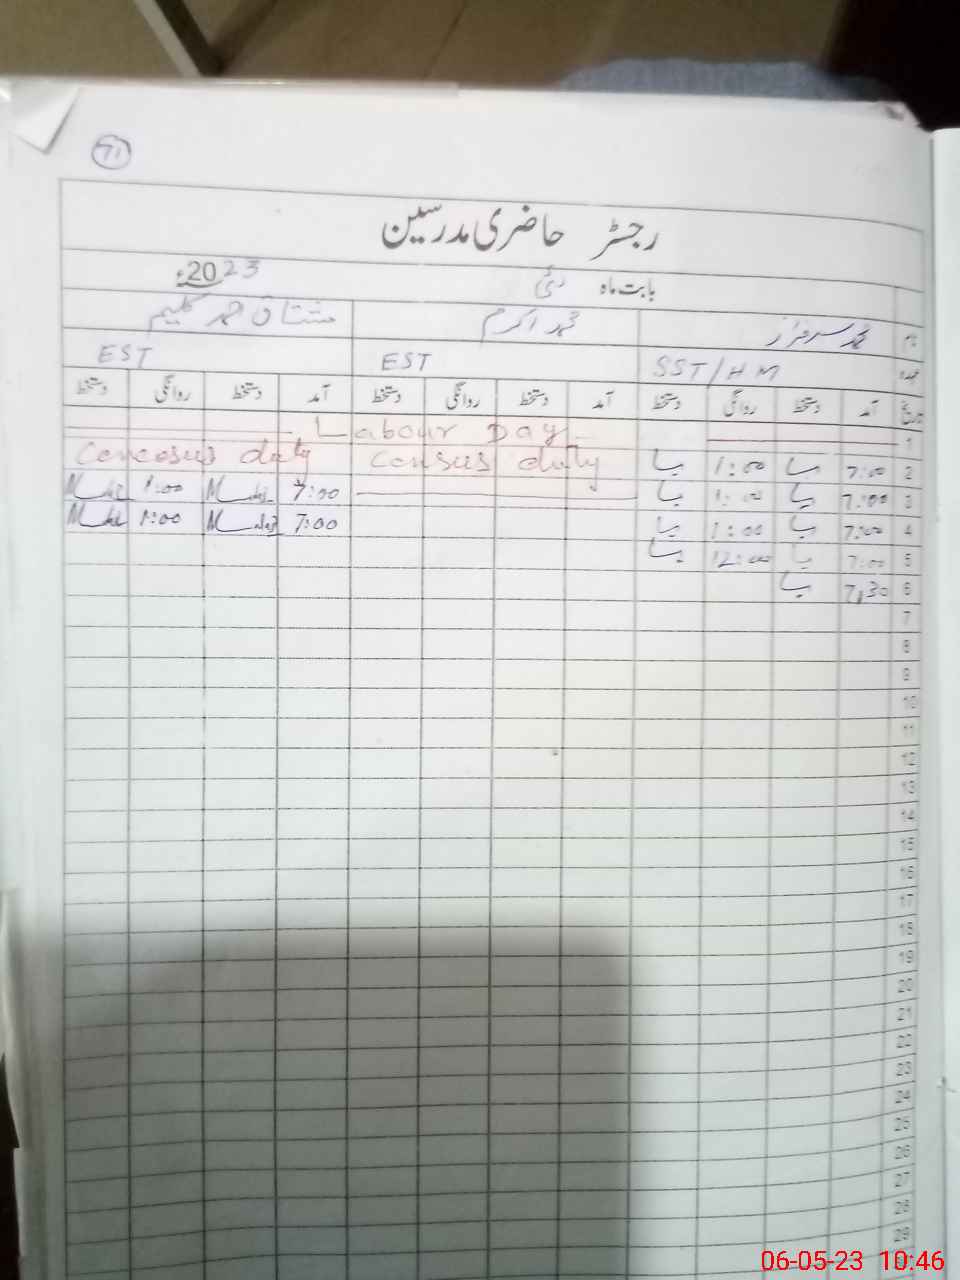 71
رجسٹر حاضری مدرسین
بابت ماہ مئی 2023ء
نام محمد سرفراز محمد اکرم مشتاق احمد کلیم
عہدہ SST/HM EST EST
تاریخ آمد دستخط روانگی دستخط آمد دستخط روانگی دستخط آمد دستخط روانگی دستخط
1 Labour Day
2 7:00 1:00 Census duty Concosus duty
3 7:00 1:00 7:00 1:00
4 7:00 1:00 7:00 1:00
5 7:00 12:00
6 7,30
7
8
9
10
11
12
13
14
15
16
17
18
19
20
21
22
23
24
25
26
27
28
29
06-05-23 10:46